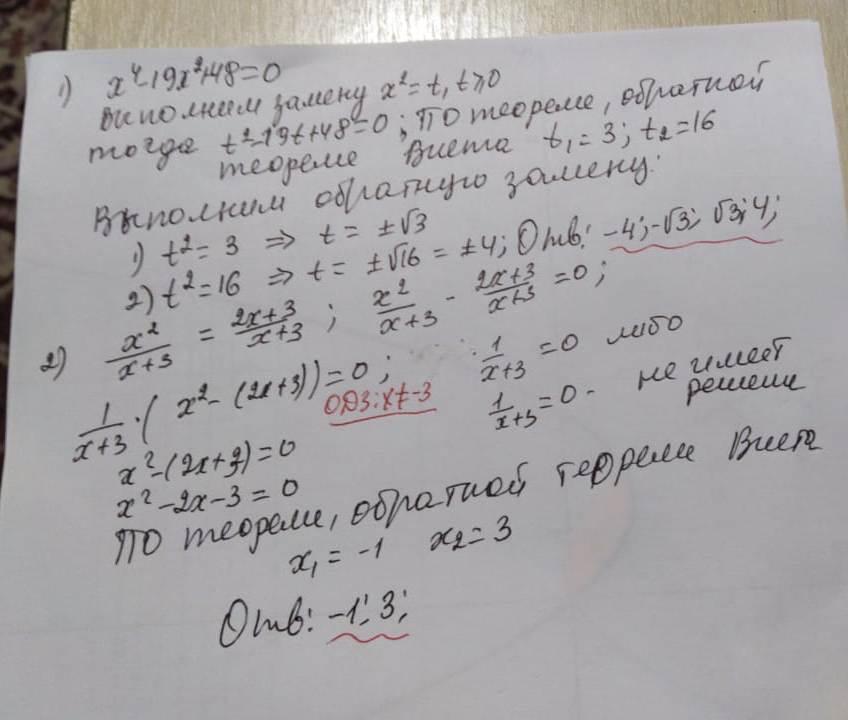 1) x⁴-19x²+48=0
Выполним замену x²=t, t≥0
тогда t²-19t+48=0; По теореме, обратной
теореме Виета t₁=3; t₂=16
Выполним обратную замену:
1) t²=3 ⇒ t= ±√3
2) t²=16 ⇒ t= ±√16 = ±4; Отв: -4; -√3; √3; 4;
2) x²/(x+3) = (2x+3)/(x+3) ; x²/(x+3) - (2x+3)/(x+3) =0;
1/(x+3) · (x²-(2x+3))=0; 1/(x+3) =0 либо
ОДЗ: x≠-3 1/(x+3) =0 - не имеет
решени
x²-(2x+3)=0
x²-2x-3=0
По теореми, обратной теореми Виета
x₁=-1 x₂=3
Отв: -1; 3;